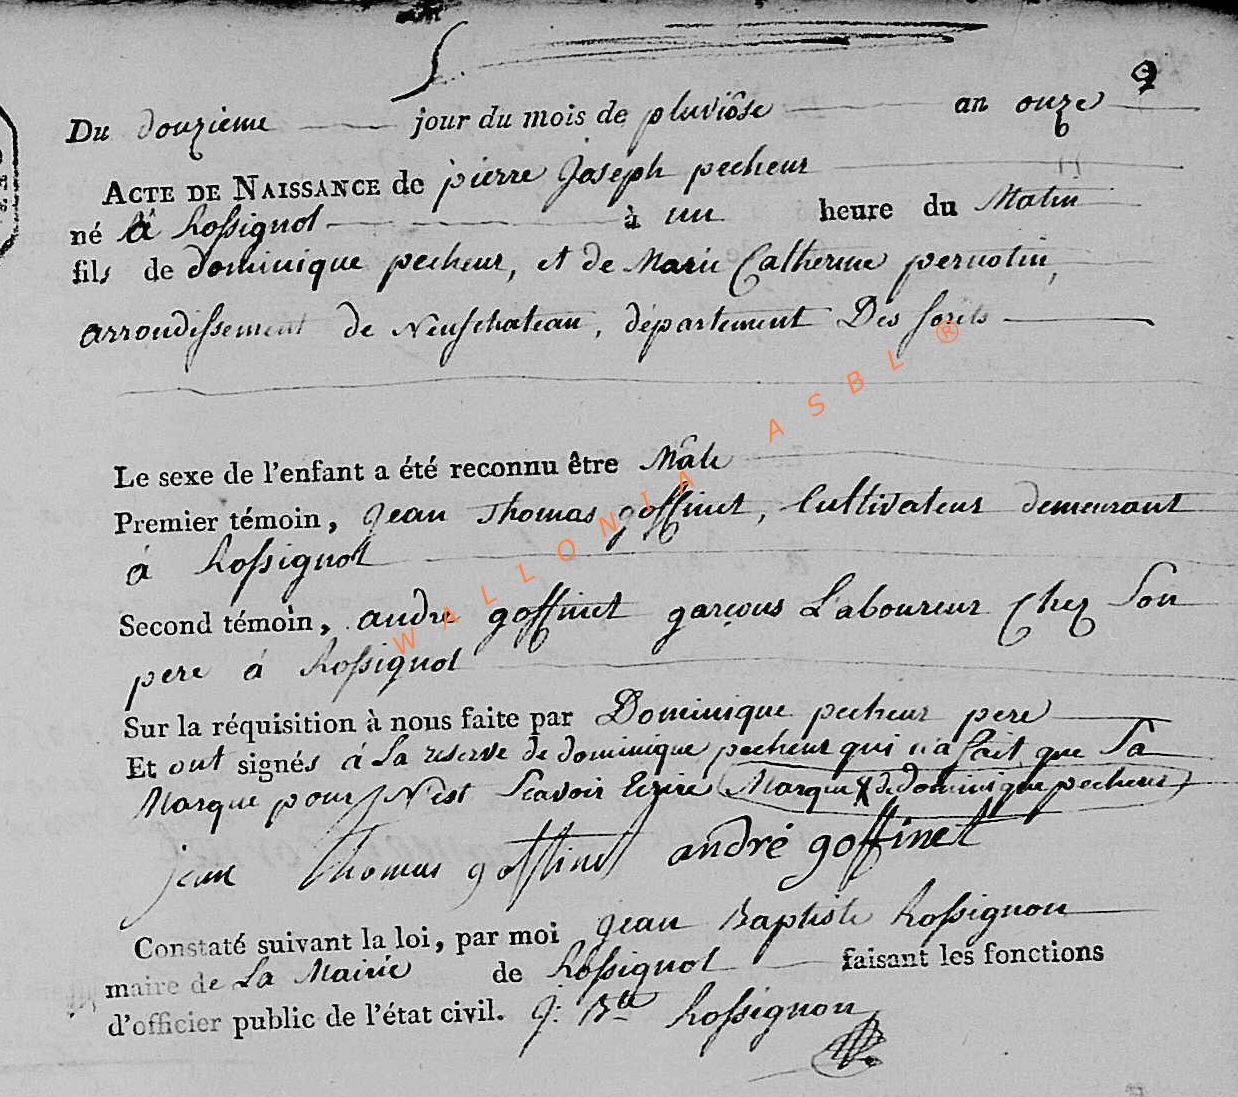 5
9
Du douzieme jour du mois de pluviôse an onze
ACTE DE NAISSANCE de pierre Joseph pecheur
né à Rossignol à un heure du Matin
fils de dominique pecheur, et de Marie Catherine pernotin,
arrondissement de Neufchateau, département Des forêts
Le sexe de l'enfant a été reconnu être Mâle
Premier témoin, Jean Thomas goffinet, Cultivateur demeurant
á Rossignol
Second témoin, andre goffinet garçons Laboureur Chez Son
pere á Rossignol
Sur la réquisition à nous faite par Dominique pecheur pere
Et ont signés á La reserve de dominique pecheur qui n'a fait que Sa
Marque pour N'est Scavoir Ecrire Marque X de dominique pecheur
jean Thomas goffinet andré goffinet
Constaté suivant la loi, par moi Jean Baptiste Rossignon
maire de La Mairie de Rossignol faisant les fonctions
d'officier public de l'état civil. J: Bte Rossignon
WALLONIA ASBL ®